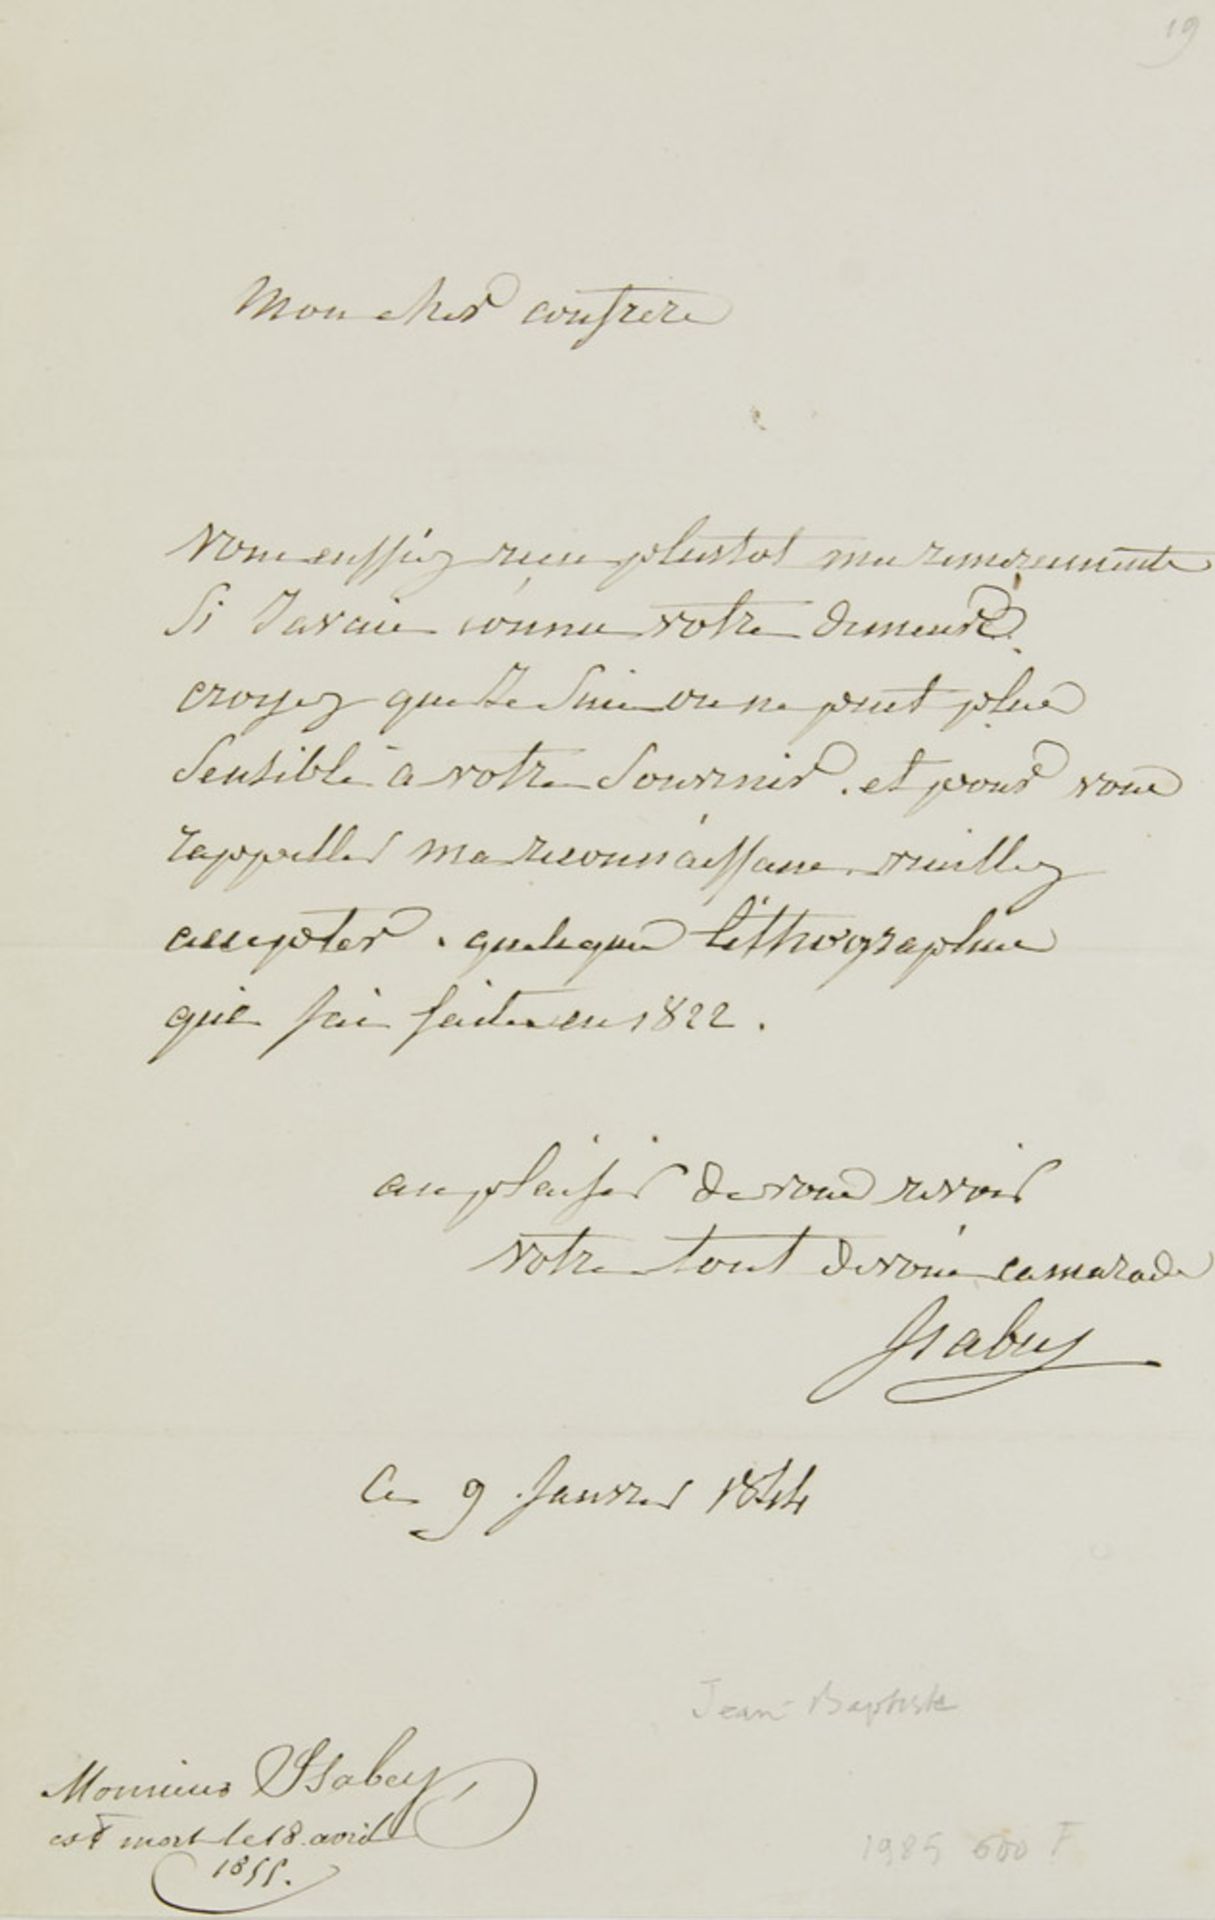 19
Mon cher confrere
Vous eussiez recu plustot mes remerciements
Si J'avais connu votre demeure.
croyez que Je Suis on ne peut plus
Sensible à votre Souvenir. et pour vous
rappeller ma reconnaissance. veuillez
accepter. quelques lithographies
que j'ai faites en 1822.
au plaisir de vous revoir
votre tout devoué camarade
Isabey
Ce 9 Janvier 1844
Jean-Baptiste
Monsieur Isabey,
est mort le 18 avril
1855.
1985 600 F